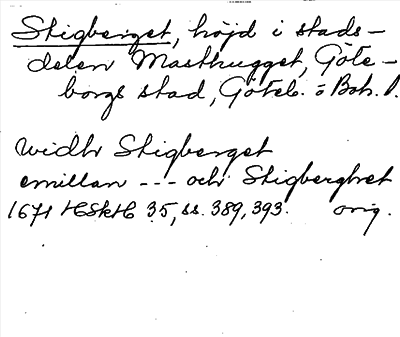 Stigberget, höjd i stads-
delen Masthugget, Göte-
borgs stad, Göteb. o Boh. l.
widh Stigberget
emillan --- och Stigberghet
1671 HSkH 35, ss. 389, 393. orig.